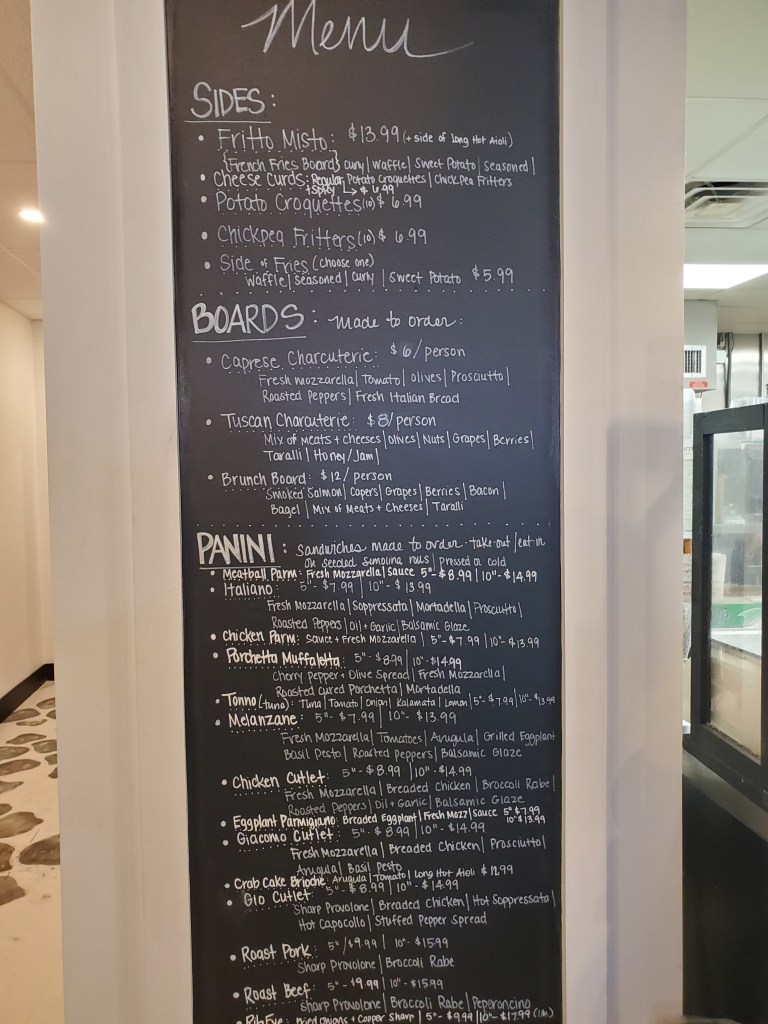 Menu
SIDES:
• Fritto Misto: $13.99 (+ side of Long Hot Aioli)
{French Fries Board} Curly | Waffle | Sweet Potato | Seasoned |
Potato Croquettes | Chickpea Fritters
• Cheese Curds: Regular
+ Spicy → $6.99
• Potato Croquettes (10) $6.99
• Chickpea Fritters (10) $6.99
• Side of Fries (choose one)
Waffle | Seasoned | Curly | Sweet Potato $5.99
BOARDS: made to order:
• Caprese Charcuterie: $6/person
Fresh mozzarella | Tomato | olives | Prosciutto |
Roasted Peppers | Fresh Italian Bread
• Tuscan Charcuterie: $8/person
Mix of Meats + Cheeses | Olives | Nuts | Grapes | Berries |
Taralli | Honey/Jam |
• Brunch Board: $12/person
Smoked Salmon | Capers | Grapes | Berries | Bacon |
Bagel | Mix of Meats + Cheeses | Taralli
PANINI: Sandwiches made to order - take-out/eat in
on seeded semolina rolls | pressed or cold
• Meatball Parm: Fresh Mozzarella | Sauce 5"- $8.99 | 10"- $14.99
• Italiano: 5"- $7.99 | 10"- $13.99
Fresh Mozzarella | Soppressata | Mortadella | Prosciutto |
Roasted Peppers | Oil + Garlic | Balsamic Glaze
• Chicken Parm: Sauce + Fresh Mozzarella | 5"- $7.99 | 10"- $13.99
• Porchetta Muffaletta: 5"- $8.99 | 10"- $14.99
Cherry Pepper + Olive Spread | Fresh Mozzarella |
Roasted cured Porchetta | Mortadella
• Tonno (tuna): Tuna | Tomato | Onion | Kalamata | Lemon | 5"- $7.99 | 10"- $13.99
• Melanzane: 5"- $7.99 | 10"- $13.99
Fresh Mozzarella | Tomatoes | Arugula | Grilled Eggplant
Basil Pesto | Roasted Peppers | Balsamic Glaze
• Chicken Cutlet: 5"- $8.99 | 10"- $14.99
Fresh Mozzarella | Breaded Chicken | Broccoli Rabe |
Roasted Peppers | Oil + Garlic | Balsamic Glaze
• Eggplant Parmigiano: Breaded Eggplant | Fresh Mozz | Sauce 5" $7.99
10" $13.99
• Giacomo Cutlet: 5"- $8.99 | 10"- $14.99
Fresh Mozzarella | Breaded Chicken | Prosciutto |
Arugula | Basil Pesto
• Crab Cake Brioche: Arugula | Tomato | Long Hot Aioli
• Gio Cutlet: 5"- $8.99 | 10"- $14.99
Sharp Provolone | Breaded Chicken | Hot Soppressata |
Hot Capocollo | Stuffed Pepper Spread
• Roast Pork: 5"/$9.99 | 10"- $15.99
Sharp Provolone | Broccoli Rabe
• Roast Beef: 5"- $9.99 | 10"- $15.99
Sharp Provolone | Broccoli Rabe | Peperoncino
• Rib Eye: Fried Onions + Cooper Sharp | 5"- $9.99 | 10"- $17.99